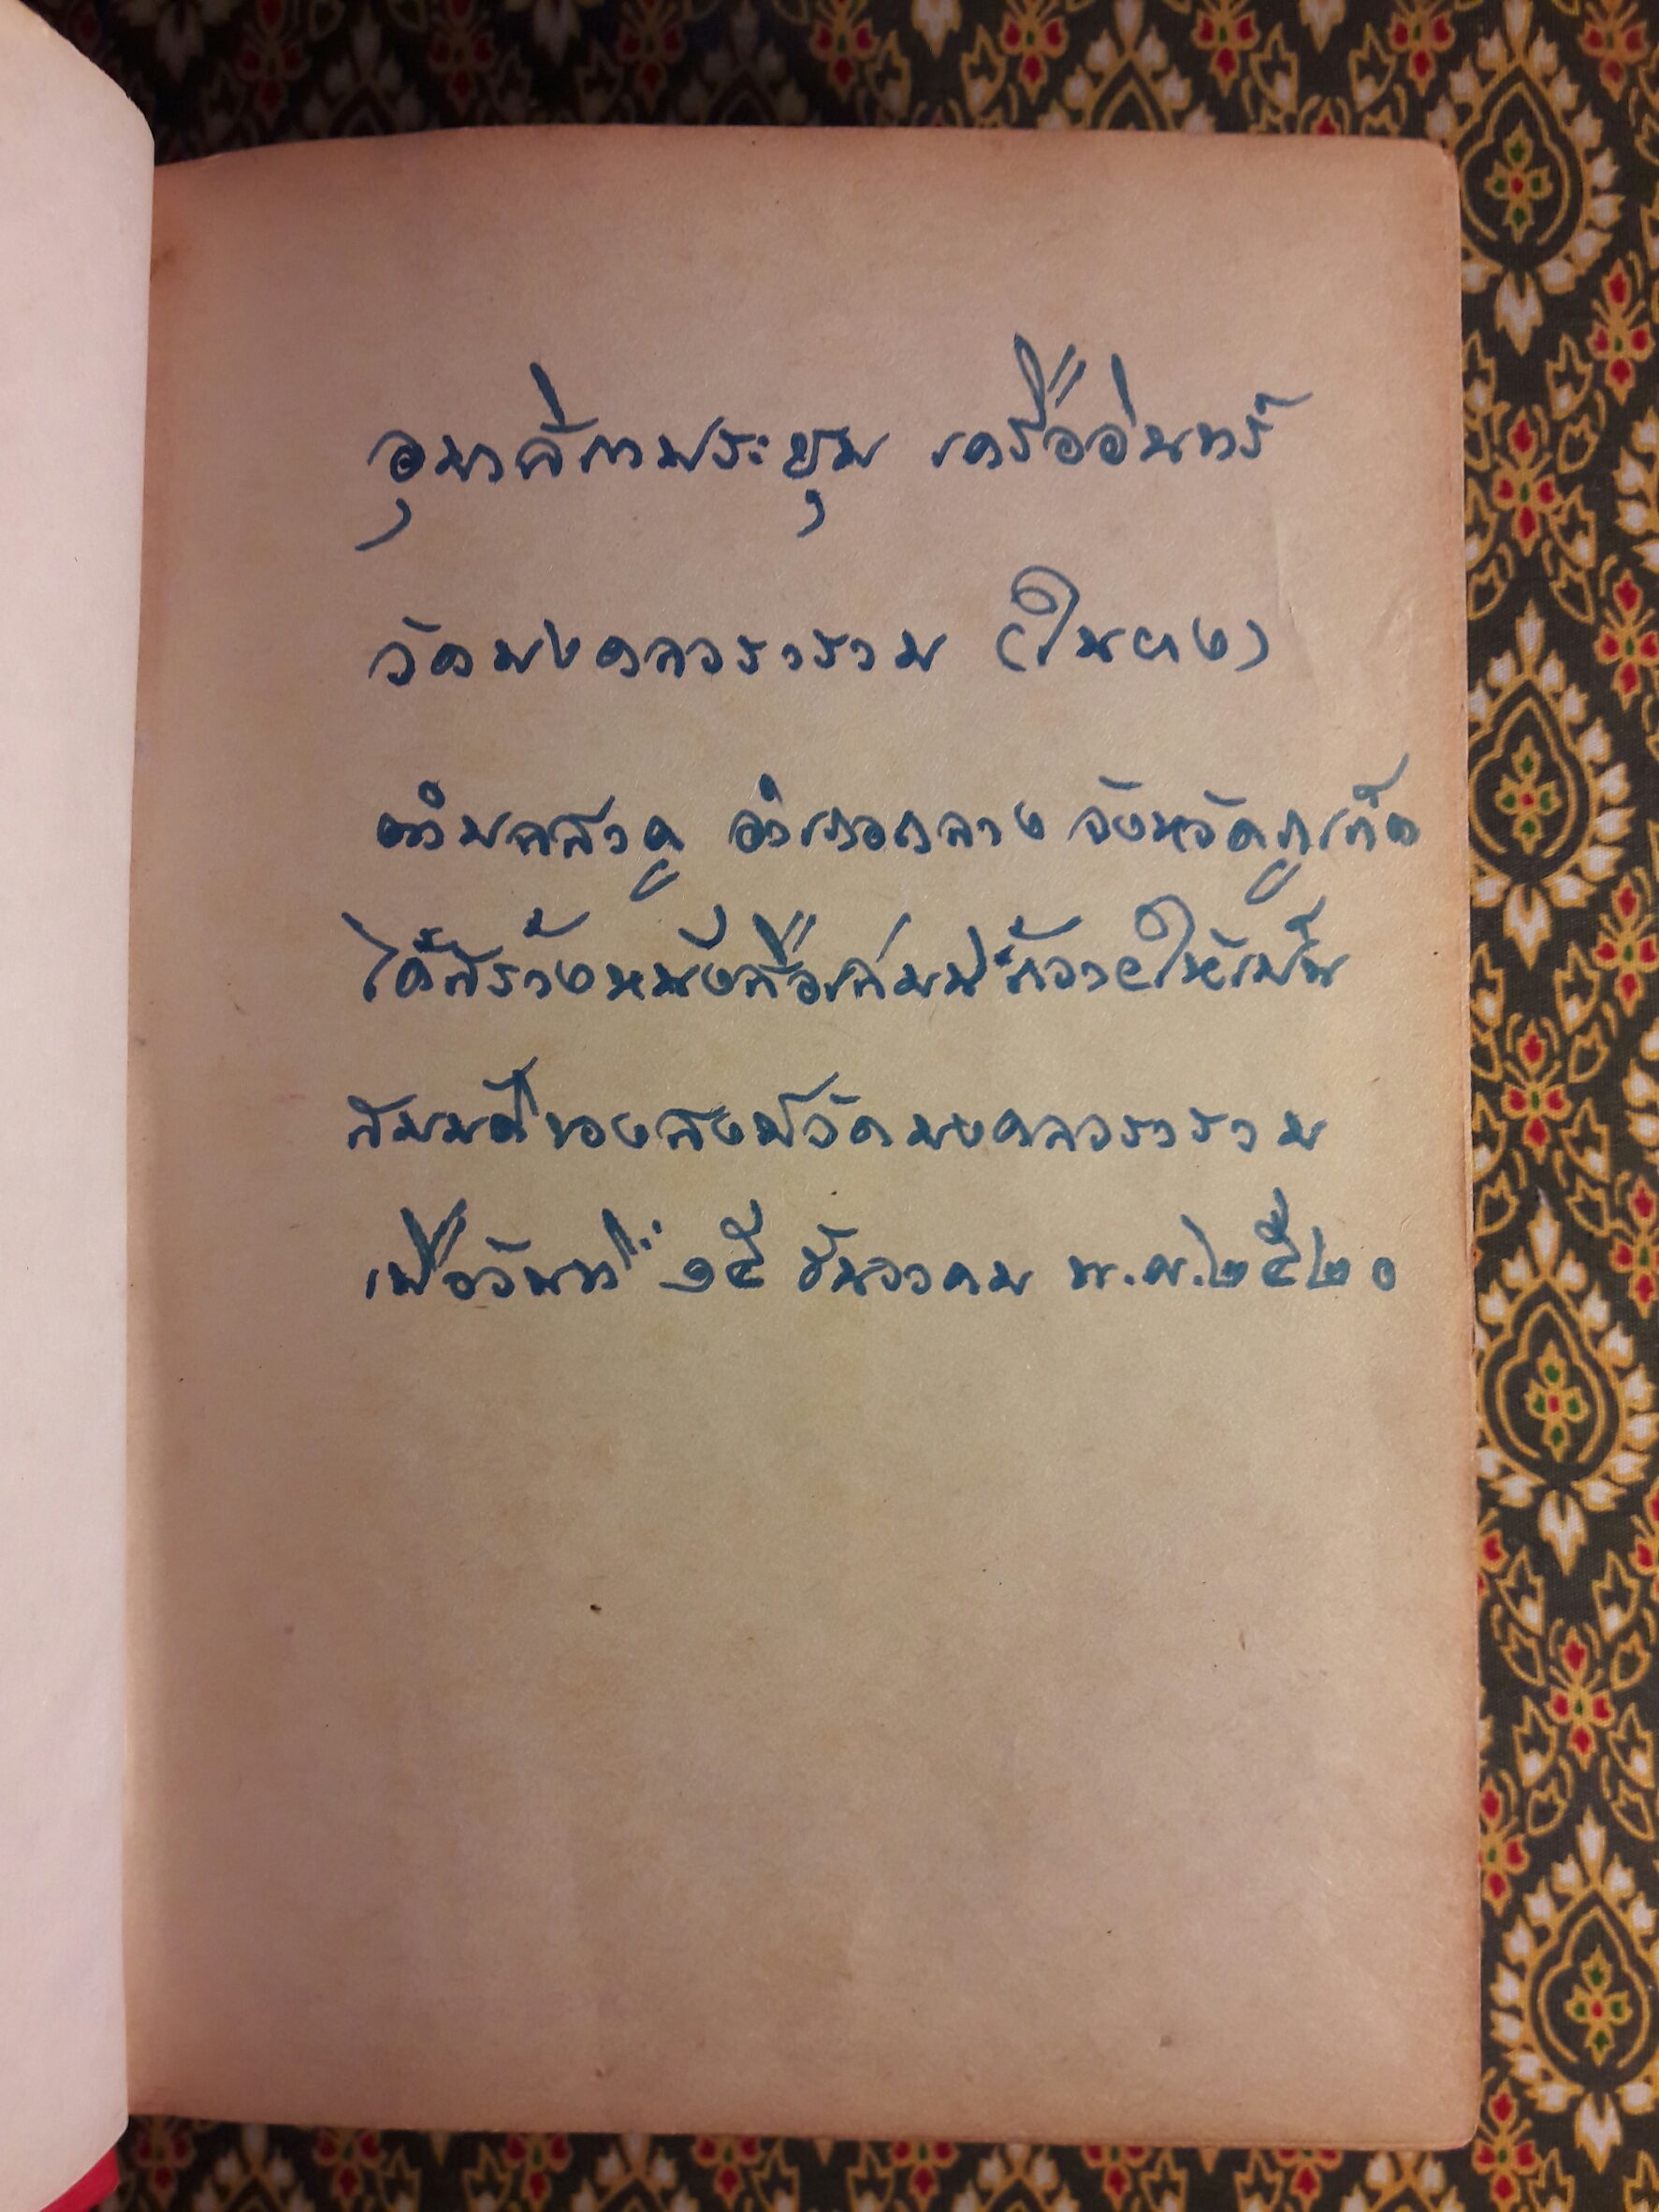 อุบาสิกาประยูม เครืออ่อนทร์
วัดมงคลวราราม (ในยาง)
ตำบลสาคู อำเภอถลาง จังหวัดภูเก็ต
ได้สร้างหนังสือเล่มนี้ถวายให้เป็น
สมบัติของสงฆ์วัดมงคลวราราม
เมื่อวันที่ ๑๕ ธันวาคม พ.ศ.๒๕๒๐